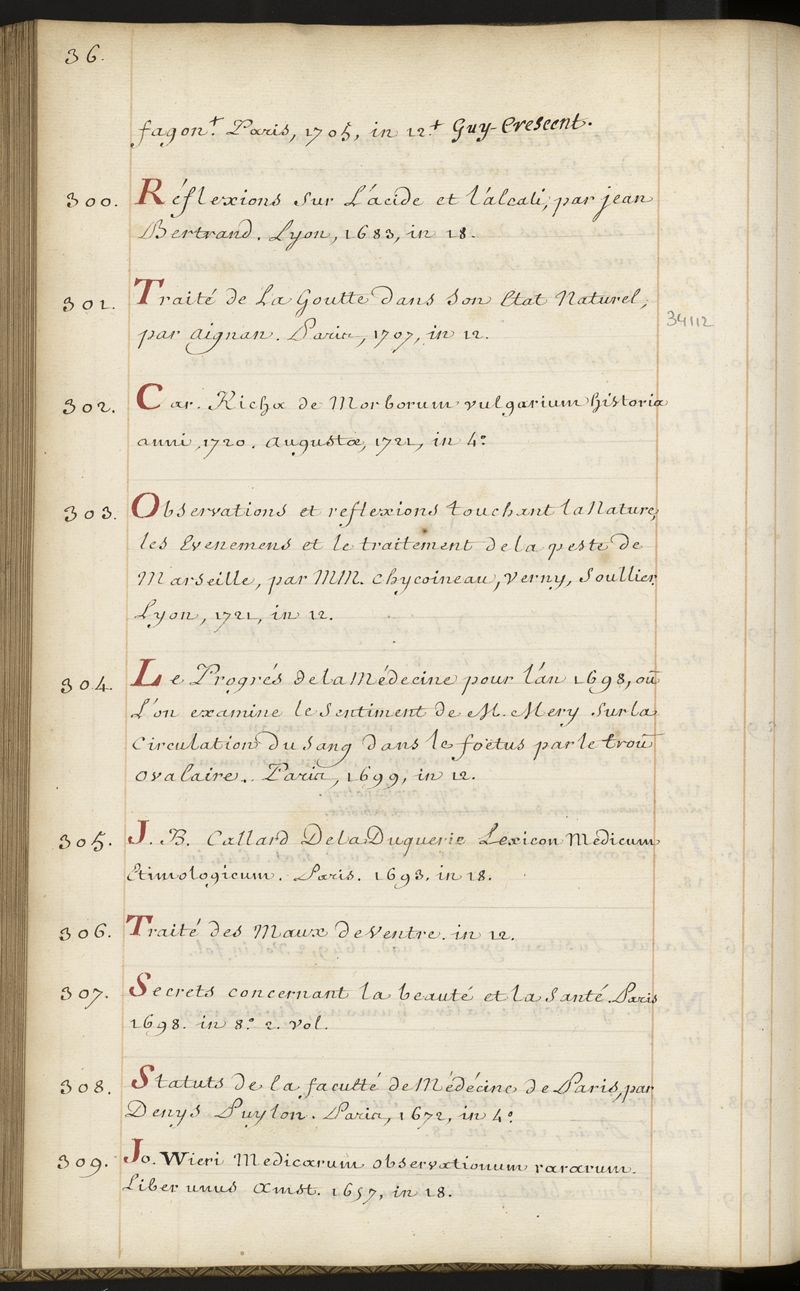 36.
fagon.+ Paris, 1705, in 12.+ Guy-Crescent.
300. Réflexions Sur L'acide et l'alcali, par jean
Bertrand. Lyon, 1683, in 18.
301. Traité de La Goutte Dans Son Etat Naturel,
34112
par Aignan. Paris, 1707, in 12.
302. Car. Richa de Morborum vulgarium historia
anni, 1720. Augustæ, 1721, in 4.º
303. Observations et reflexions touchant la Nature,
les Evenemens et le traitement de la peste de
Marseille, par MM. Chycoineau, Verny, Soullier
Lyon, 1721, in 12.
304. Le Progrés de la Médecine pour l'an 1698, où
L'on examine le Sentiment de M. Mery Sur la
Circulation Du Sang Dans le foetus par le trou
Ovalaire. Paris, 1699, in 12.
305. J. B. Callard De la Duquerie Lexicon Medicum
Etimologicum. Paris. 1693. in 18.
306. Traité des Maux de Ventre. in 12.
307. Secrets concernant la beauté et la Santé. Paris
1698. in 8.º 2. vol.
308. Statuts de la faculté de Médécine de Paris, par
Denys Puylon. Paris, 1672, in 4.º
309. Jo. Wieri Medicarum observationum rararum.
Liber unus Amst. 1657, in 18.